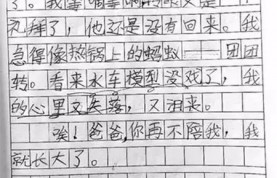 了。我盼啊盼啊盼,又是一
礼拜了,他还是没有回来。我
急得像热锅上的蚂蚁——团团
转。看来水车模型没戏了,我
的心里又失落,又沮丧。
唉!爸爸,你再不陪我,我
就长大了。